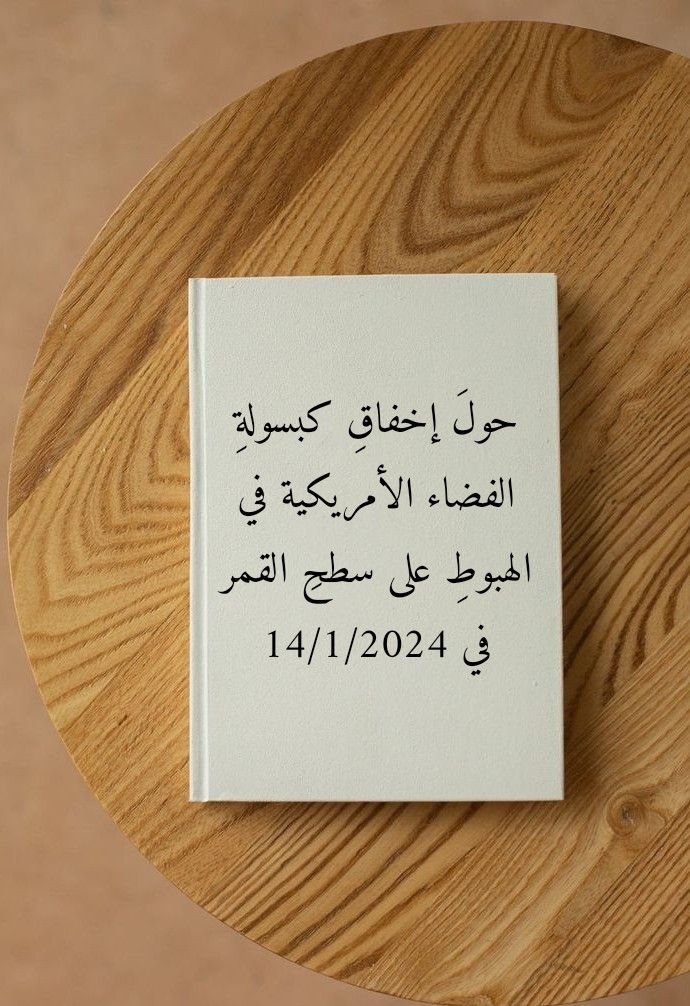 حولَ إخفاقِ كبسولةِ
الفضاء الأمريكية في
الهبوطِ على سطحِ القمر
في 14/1/2024